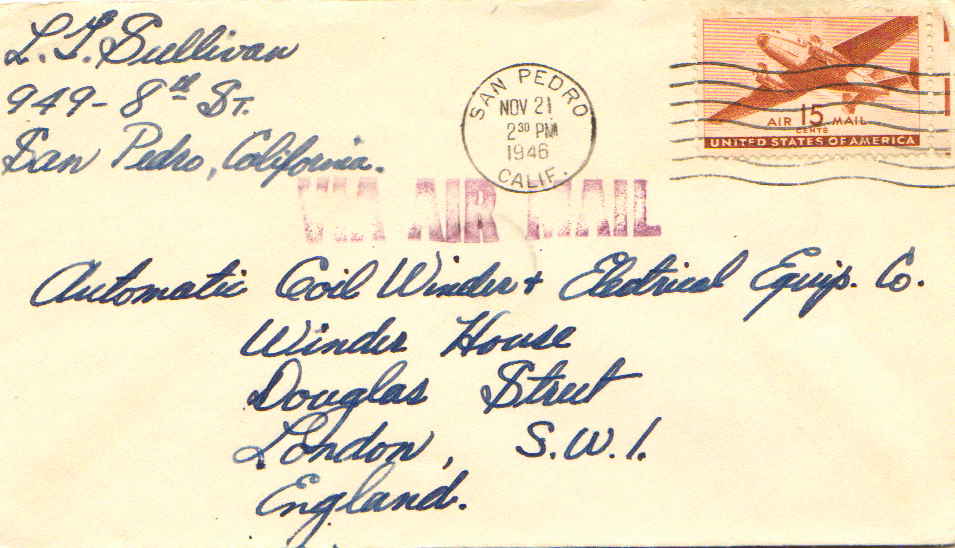 L. F. Sullivan
949 - 8th St.
San Pedro, California.
SAN PEDRO
NOV 21
2 30 PM
1946
CALIF.
AIR 15 MAIL
CENTS
UNITED STATES OF AMERICA
VIA AIR MAIL
Automatic Coil Winder & Electrical Equip. Co.
Winder House
Douglas Street
London, S.W.1.
England.